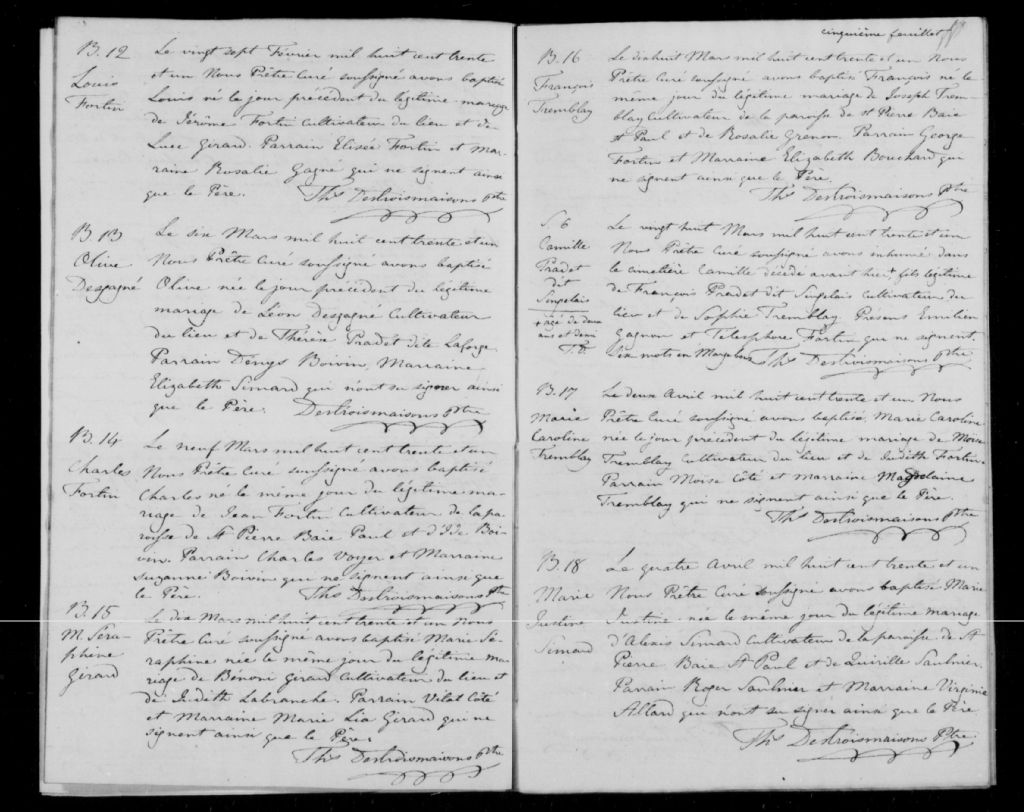 B. 12
Louis
Fortin
Le vingt sept Février mil huit cent trente
et un Nous Prêtre Curé soussigné avons baptisé
Louis né le jour précédent du légitime mariage
de Jérôme Fortin Cultivateur du lieu et de
Luce Girard. Parrain Elisée Fortin et Mar-
raine Rosalie Gagné qui ne signent ainsi
que le Père. Ths Destroismaisons Ptre
B. 13
Olive
Desgagné
Le six Mars mil huit cent trente et un
Nous Prêtre Curé soussigné avons baptisé
Olive née le jour précédent du légitime
mariage de Léon Desgagné Cultivateur
du lieu et de Thérèse Pradet dite Laforge
Parrain Denys Boivin, Marraine
Elizabeth Simard qui n'ont su signer ainsi
que le Père. Destroismaisons Ptre
B. 14
Charles
Fortin
Le neuf Mars mil huit cent trente et un
Nous Prêtre Curé soussigné avons baptisé
Charles né le même jour du légitime ma-
riage de Jean Fortin Cultivateur de la pa-
roisse de St Pierre Baie Paul et d'Ide Boi-
vin. Parrain Charles Voyer et Marraine
Suzanne Boivin qui ne signent ainsi que
le Père. Ths Destroismaisons Ptre
B. 15
M. Séra-
phine
Girard
Le dix Mars mil huit cent trente et un Nous
Prêtre Curé soussigné avons baptisé Marie Sé-
raphine née le même jour du légitime ma-
riage de Bénoni Girard Cultivateur du lieu et
de Judith Labranche. Parrain Vilal Coté
et Marraine Marie Lia Girard qui ne
signent ainsi que le Père.
Ths Destroismaisons Ptre
cinquième feuillet
B. 16
François
Tremblay
Le dixhuit Mars mil huit cent trente et un Nous
Prêtre Curé soussigné avons baptisé François né le
même jour du légitime mariage de Joseph Trem-
blay Cultivateur de la paroisse de St Pierre Baie
St Paul et de Rosalie Grenon. Parrain George
Fortin et Marraine Elizabeth Bouchard qui
ne signent ainsi que le Père.
Ths Destroismaisons Ptre
S. 6
Camille
Pradet
dit
Singelais
+ âgé de deux
ans et demi
T. D.
Le vingt huit Mars mil huit cent trente et un
Nous Prêtre Curé soussigné avons inhumé dans
le cimetière Camille décédé avant hier + fils légitime
de François Pradet dit Singelais Cultivateur du
lieu et de Sophie Tremblay. Présens Emilien
Gagnon et Telesphore Fortin qui ne signent.
Six mots en Marge bons Ths Destroismaisons Ptre
B. 17
Marie
Caroline
Tremblay
Le deux Avril mil huit cent trente et un Nous
Prêtre Curé soussigné avons baptisé Marie Caroline
née le jour précédent du légitime mariage de Moise
Tremblay Cultivateur du lieu et de Judith Fortin
Parrain Moise Côté et marraine Magdelaine
Tremblay qui ne signent ainsi que le Père.
Ths Destroismaisons Ptre
B. 18
Marie
Justine
Simard
Le quatre Avril mil huit cent trente et un
Nous Prêtre Curé soussigné avons baptisé Marie
Justine née le même jour du légitime mariage
d'Alexis Simard Cultivateur de la paroisse de St
Pierre Baie St Paul et de Quirille Saulnier.
Parrain Roger Saulnier et Marraine Virginie
Allard qui n'ont su signer ainsi que le Père
Ths Destroismaisons Ptre